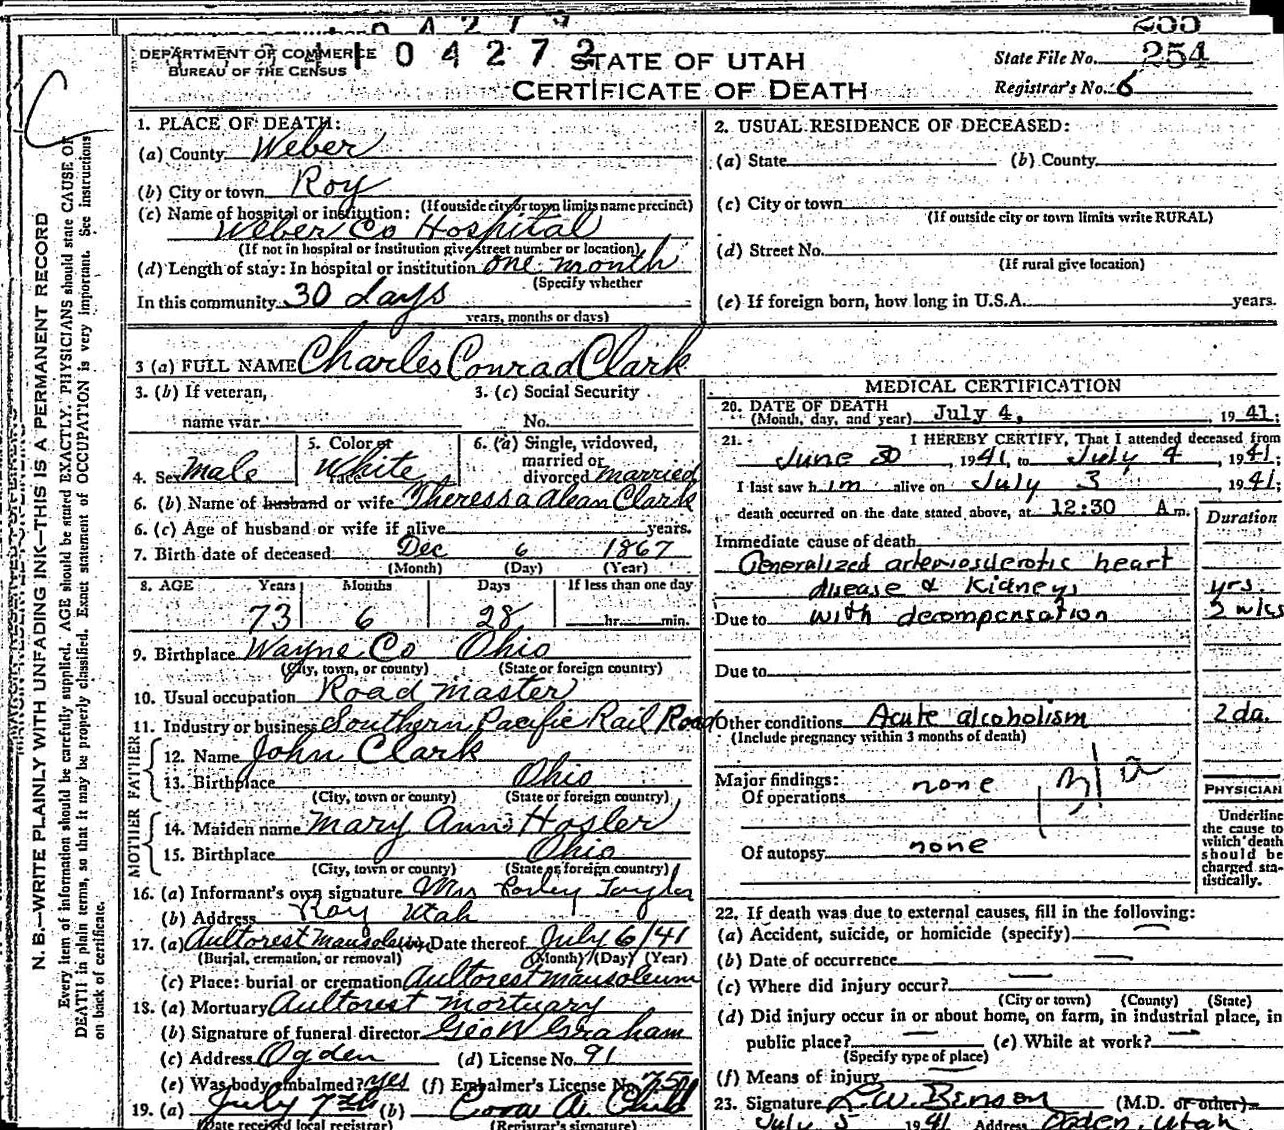 DEPARTMENT OF COMMERCE
BUREAU OF THE CENSUS
0 4 2 7 2
STATE OF UTAH
CERTIFICATE OF DEATH
State File No. 254
Registrar's No. 6
N. B.—WRITE PLAINLY WITH UNFADING INK—THIS IS A PERMANENT RECORD
Every item of information should be carefully supplied. AGE should be stated EXACTLY. PHYSICIANS should state CAUSE OF
DEATH in plain terms, so that it may be properly classified. Exact statement of OCCUPATION is very important. See instructions
on back of certificate.
1. PLACE OF DEATH:
(a) County Weber
(b) City or town Roy
(If outside city or town limits name precinct)
(c) Name of hospital or institution:
Weber Co Hospital
(If not in hospital or institution give street number or location)
(d) Length of stay: In hospital or institution one month
(Specify whether
In this community 30 days
years, months or days)
2. USUAL RESIDENCE OF DECEASED:
(a) State (b) County
(c) City or town
(If outside city or town limits write RURAL)
(d) Street No.
(If rural give location)
(e) If foreign born, how long in U.S.A. years.
3 (a) FULL NAME Charles Conrad Clark
3. (b) If veteran,
name war
3. (c) Social Security
No.
4. Sex male
5. Color or
race White
6. (a) Single, widowed,
married or
divorced married
6. (b) Name of husband or wife Theressa Alean Clark
6. (c) Age of husband or wife if alive years.
7. Birth date of deceased Dec 6 1867
(Month) (Day) (Year)
8. AGE Years Months Days If less than one day
73 6 28 hr. min.
9. Birthplace Wayne Co Ohio
(City, town, or county) (State or foreign country)
10. Usual occupation Road master
11. Industry or business Southern Pacific Rail Road
FATHER
12. Name John Clark
13. Birthplace Ohio
(City, town or county) (State or foreign country)
MOTHER
14. Maiden name Mary Ann Hosler
15. Birthplace Ohio
(City, town or county) (State or foreign country)
16. (a) Informant's own signature Mrs Taylor
(b) Address Roy Utah
17. (a) Aultorest Mausoleum Date thereof July 6/41
(Burial, cremation, or removal) (Month) (Day) (Year)
(c) Place: burial or cremation Aultorest mausoleum
18. (a) Mortuary Aultorest mortuary
(b) Signature of funeral director Geo W Graham
(c) Address Ogden (d) License No. 91
(e) Was body embalmed? yes (f) Embalmer's License No.
19. (a) July 7th (b) Cora A. Child
(Date received local registrar) (Registrar's signature)
MEDICAL CERTIFICATION
20. DATE OF DEATH
(Month, day, and year) July 4, , 19 41;
21. I HEREBY CERTIFY, That I attended deceased from
June 30 , 1941, to July 4 , 1941;
I last saw him alive on July 3 , 1941;
death occurred on the date stated above, at 12:30 A m.
Duration
Immediate cause of death
Generalized arteriosclerotic heart
disease & Kidneys yrs.
Due to with decompensation 2 wks
Due to
Other conditions Acute alcoholism 2 da.
(Include pregnancy within 3 months of death)
Major findings:
Of operations none
Of autopsy none
PHYSICIAN
Underline
the cause to
which death
should be
charged sta-
tistically.
22. If death was due to external causes, fill in the following:
(a) Accident, suicide, or homicide (specify)
(b) Date of occurrence
(c) Where did injury occur?
(City or town) (County) (State)
(d) Did injury occur in or about home, on farm, in industrial place, in
public place? (e) While at work?
(Specify type of place)
(f) Means of injury
23. Signature L.W. Benson (M.D. or other)
July 5 1941 Address Ogden, Utah